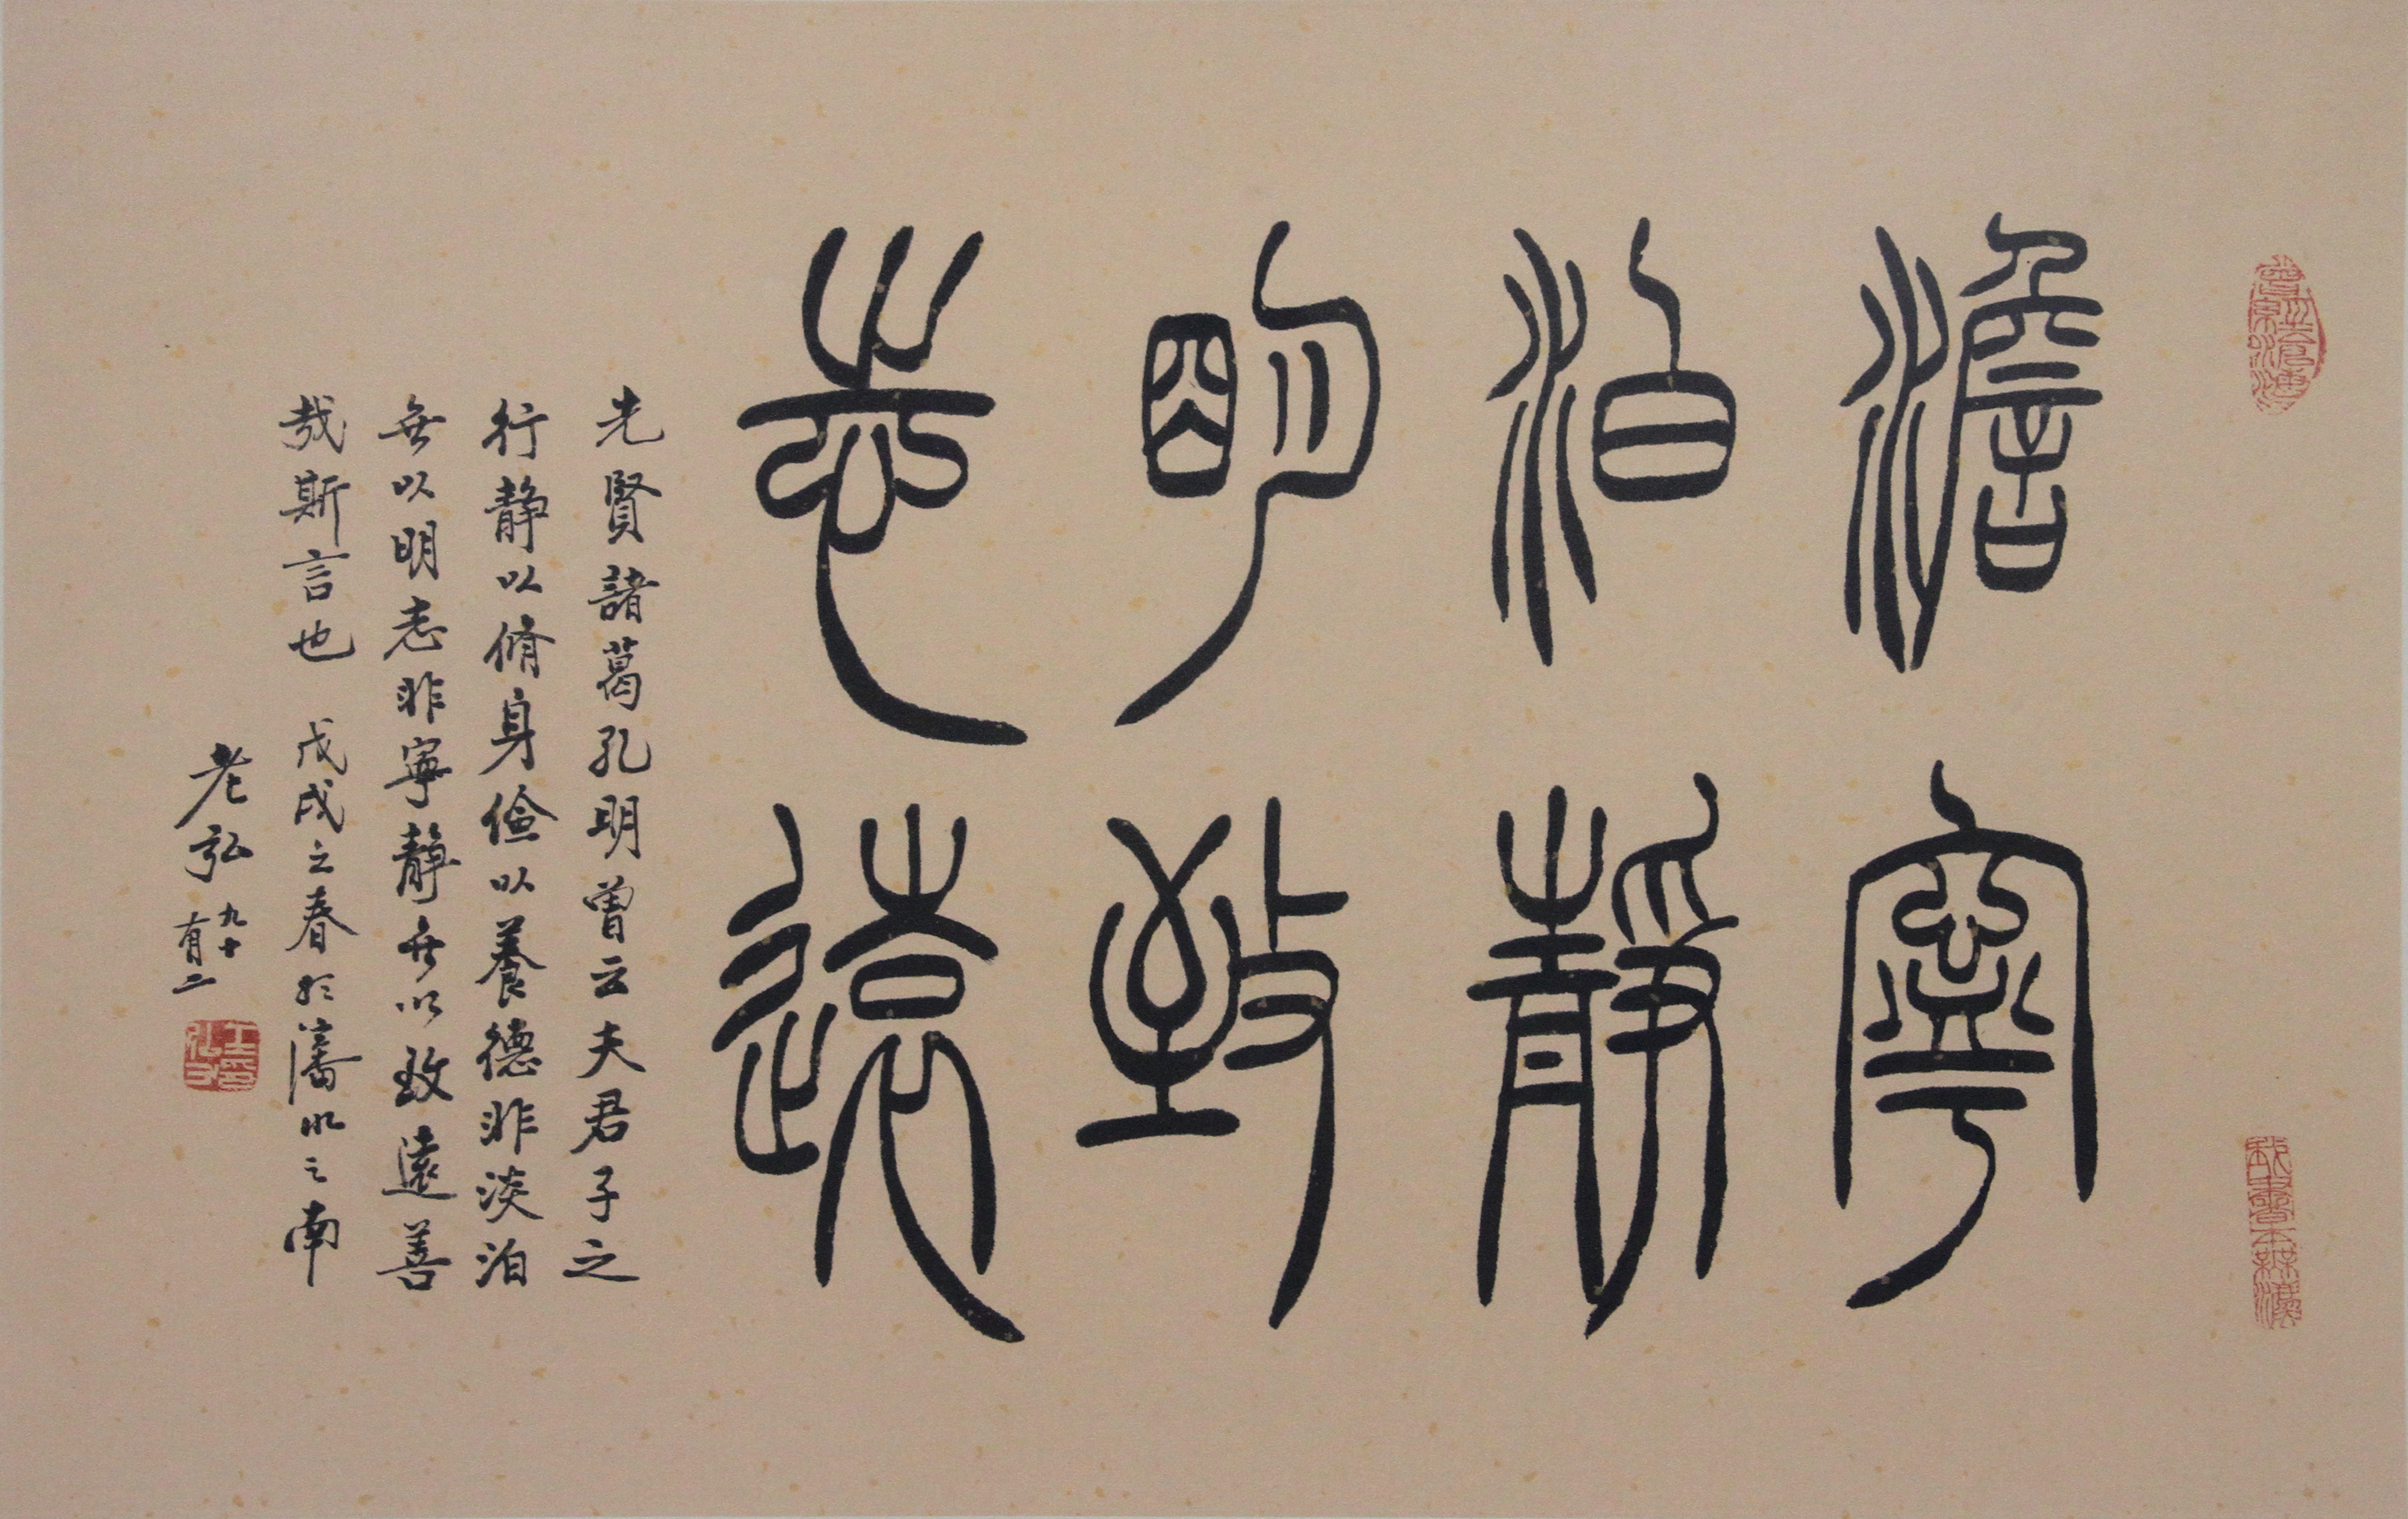 澹泊明志
寧靜致遠
先賢諸葛孔明曾云夫君子之
行静以脩身儉以養德非淡泊
無以明志非寧靜無以致遠善
哉斯言也 戊戌之春於瀋水之南
老弘 九十有二
王印弘力